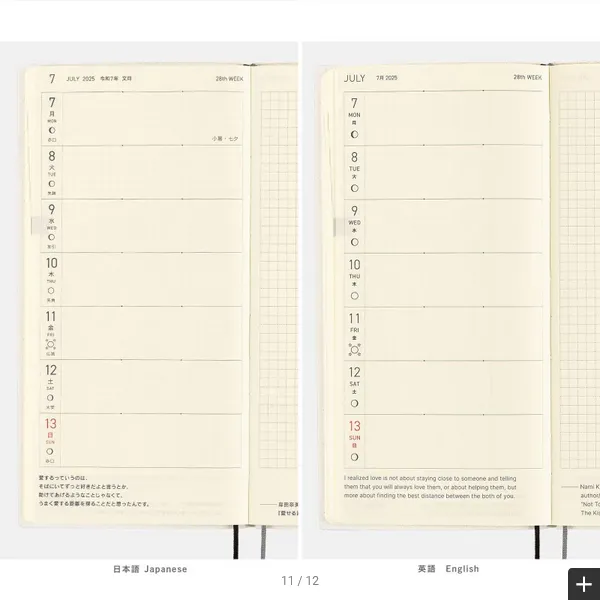 7 JULY 2025 令和7年 文月 28th WEEK
7
月
MON
赤口
小暑・七夕
8
火
TUE
先勝
9
水
WED
友引
10
木
THU
先負
11
金
FRI
仏滅
12
土
SAT
大安
13
日
SUN
赤口
愛するっていうのは、
そばにいてずっと好きだよと言うとか、
助けてあげるようなことじゃなくて、
うまく愛する距離を探ることだと思ったんです。
JULY 7月 2025 28th WEEK
7
MON
月
8
TUE
火
9
WED
水
10
THU
木
11
FRI
金
12
SAT
土
13
SUN
日
I realized love is not about staying close to someone and telling
them that you will always love them, or about helping them, but
more about finding the best distance between the both of you.
Nami K
author
"Not To
The Ki
日本語 Japanese
英語 English
11 / 12